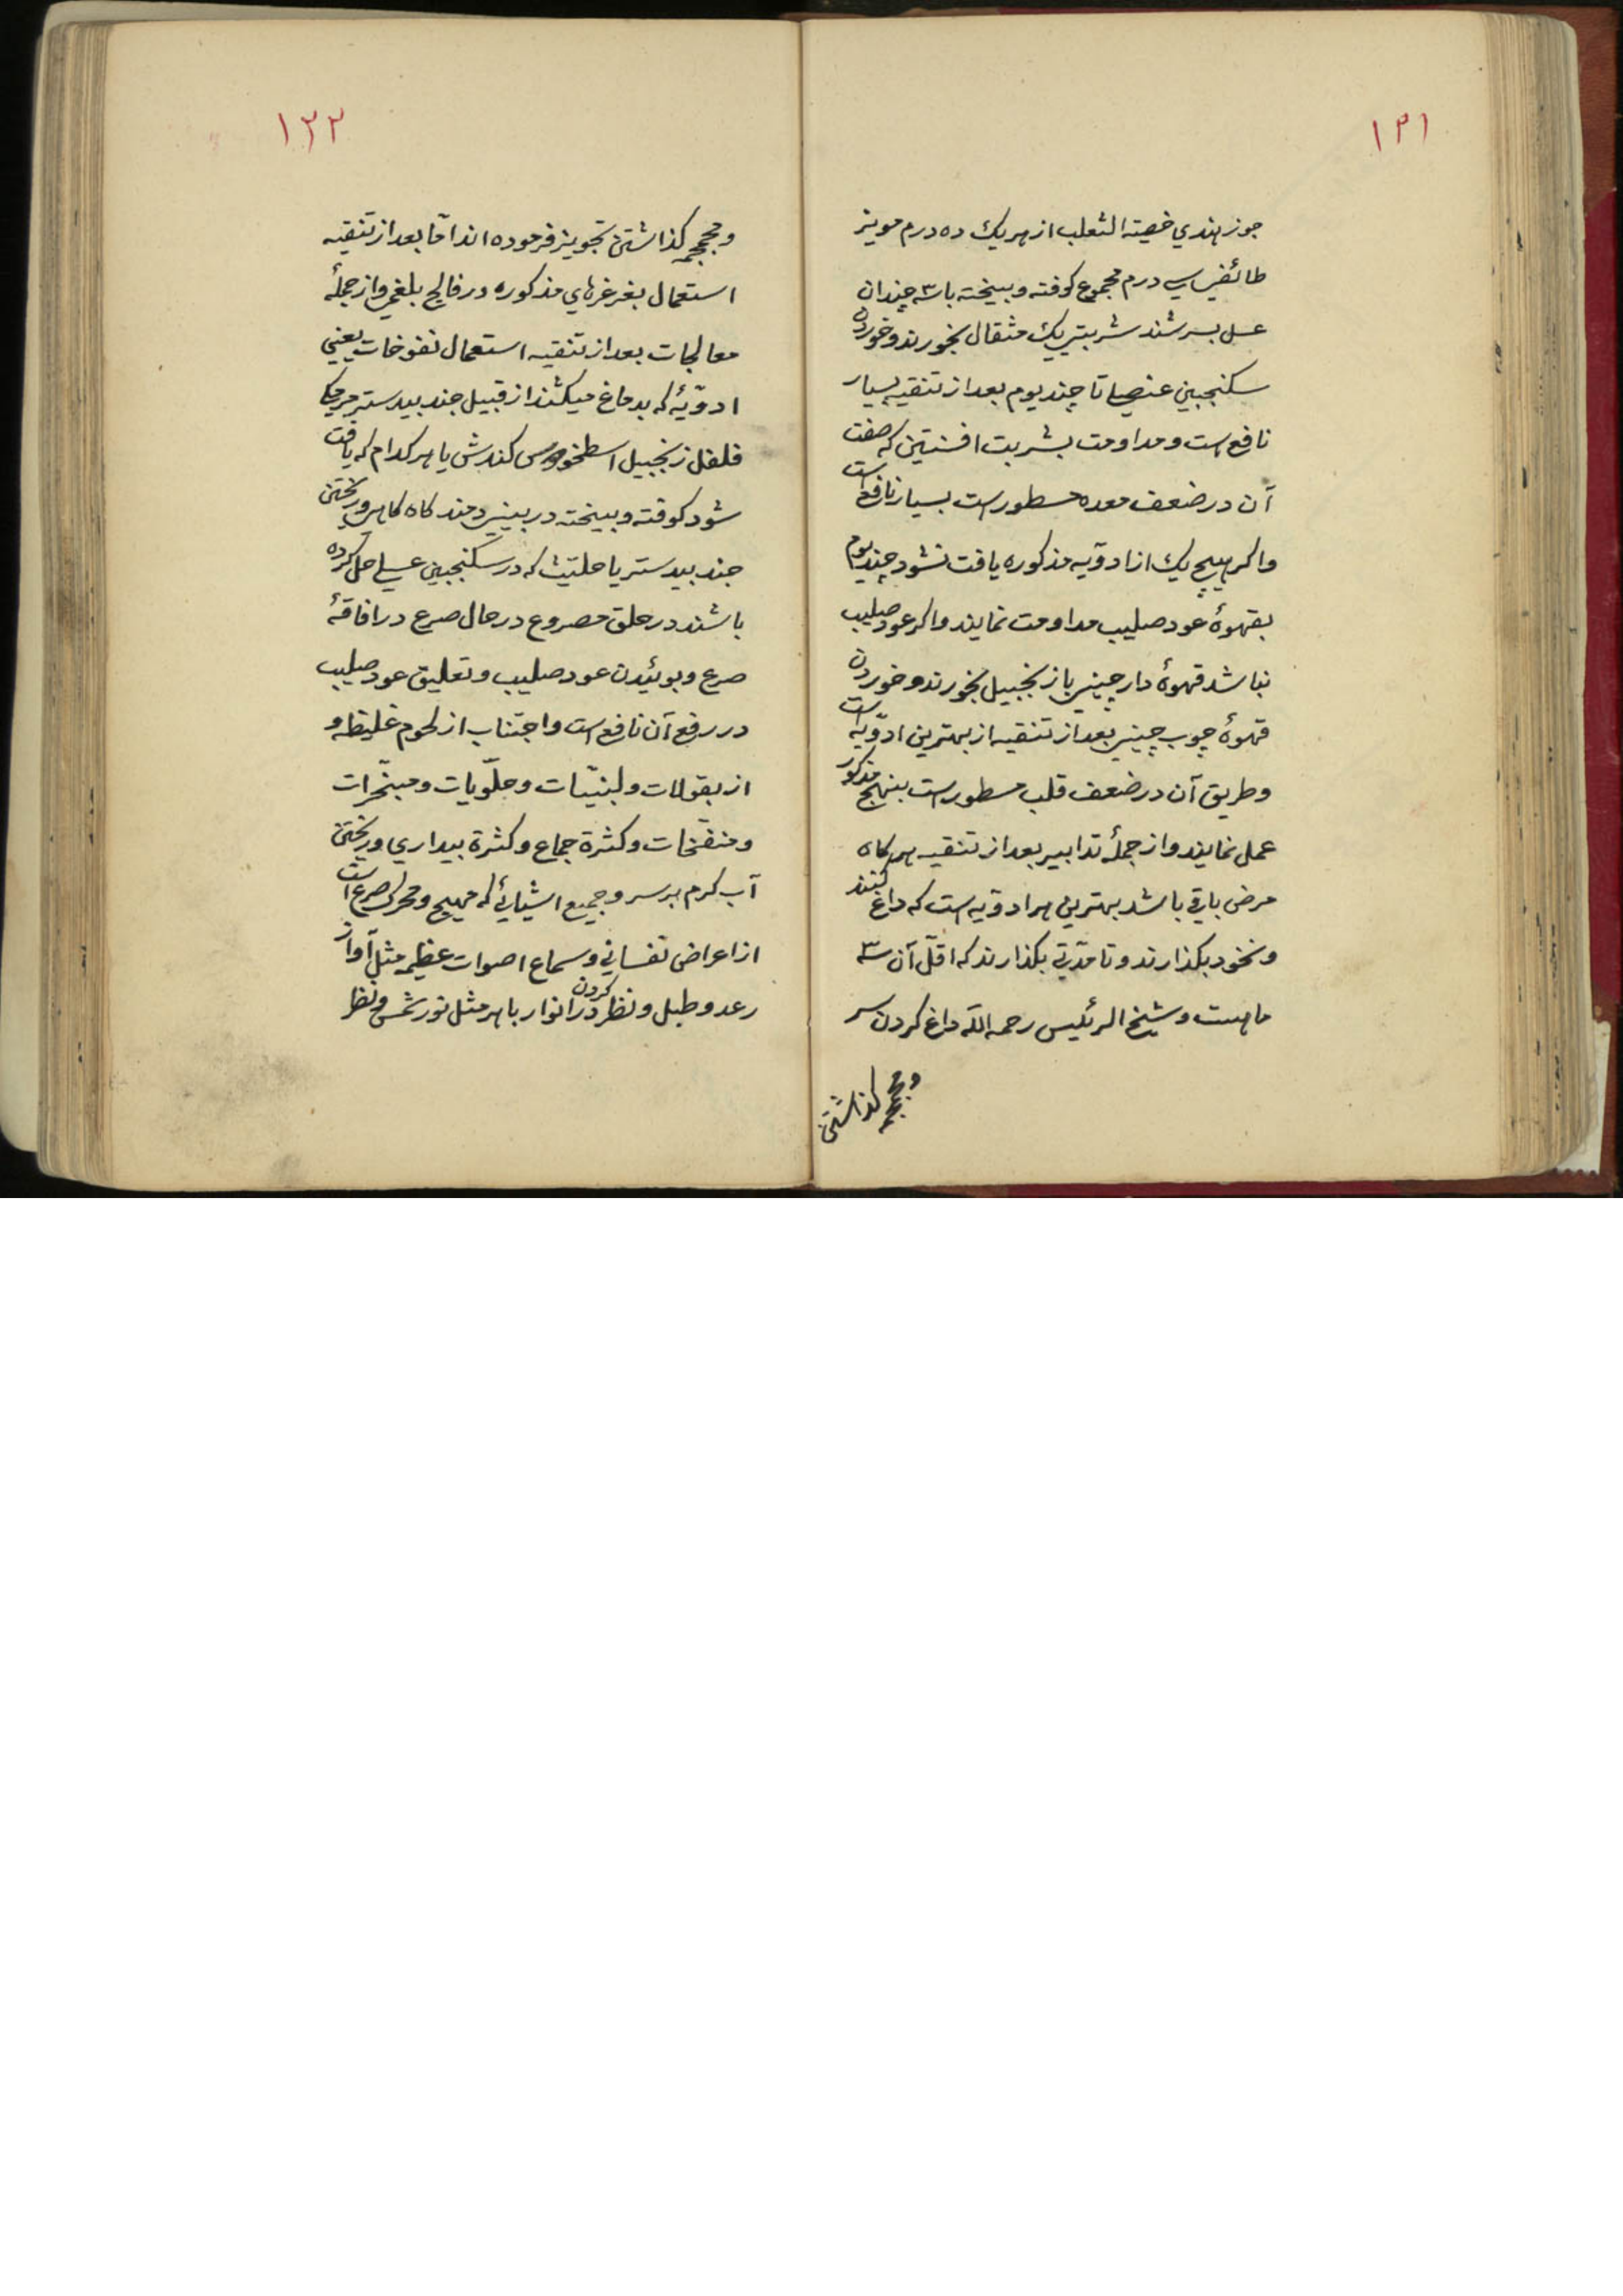 ۱۲۱
جوز هندي خصيته الثعلب از هر يك ده درم مويز
طائفي سي درم مجموع كوفته و بيخته با سه چندان
عسل بسرشند شربتي يك مثقال بخورند و خوردن
سكنجبين عنصلي تا چند يوم بعد از تنقيه بسيار
نافع است و مداومت بشربت افسنتين كه صفت
آن در ضعف معده مسطور است بسيار نافع است
واكر هيچ يك از ادوّيه مذكوره يافت نشود چند يوم
بقهوۀ عود صليب مداومت نمايند واكر عود صليب
نباشد قهوۀ دارچيني با زنجبيل بخورند و خوردن
قهوۀ چوب چيني بعد از تنقيه از بهترين ادوّيه است
وطريق آن در ضعف قلب مسطور است بنهج مذكور
عمل نمايند و از جملۀ تدابير بعد از تنقيه هر كاه
مرض باقي باشد بهترين هر ادوّيه است كه داغ كنند
ونخود بكذارند و تا مدّتي بكذارند كه اقلّ آن سه
ماهست و شيخ الرئيس رحمه الله داغ كردن سر
ومحجمه كذاشتن
۱۲۲
ومحجمه كذاشتن تجويز فرموده اند امّا بعد از تنقيه
استعمال بغرغرهاي مذكوره در فالج بلغمي و از جملۀ
معالجات بعد از تنقيه استعمال نفوخات يعني
ادوّيۀ كه بدماغ ميكشند از قبيل جند بيدستر مرمكي
فلفل زنجبيل اسطخودوس كندش يا هر كدام كه يافت
شود كوفته و بيخته در بيني دمند كاه كاهي و ريختن
جند بيدستر يا حلتيث كه در سكنجبين عسلي حل كرده
باشند در حلق مصروع در حال صرع در افاقۀ
صرع و بوئيدن عود صليب و تعليق عود صليب
در رفع آن نافع است و اجتناب از لحوم غليظه و
از بقولات و لبنيّات و حلّويات و مبخّرات
ومنفّخات و كثرة جماع و كثرة بيداري و ريختن
آب كرم بر سر و جميع اشيائي كه مهيج و محرك صرع است
از اعراض نفساني و سماع اصوات عظيمه مثل آواز
رعد و طبل و نظر كردن در انوار باهر مثل نور شمس و نظر